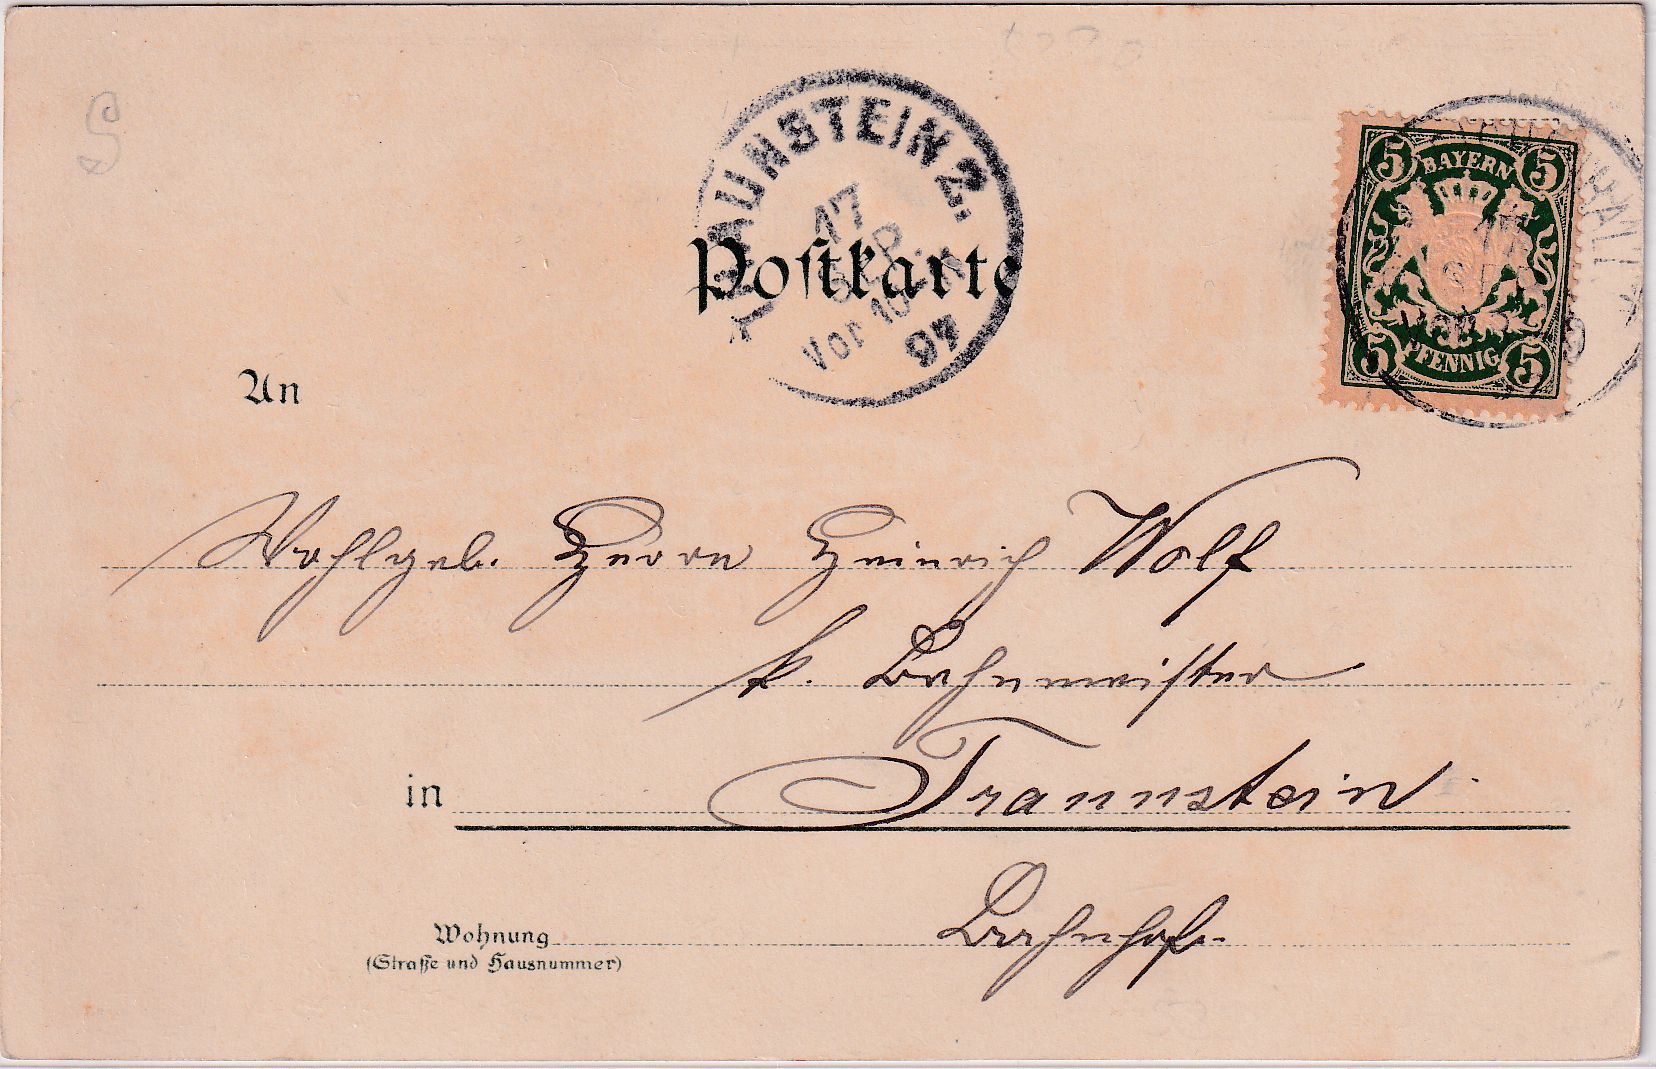 TRAUNSTEIN 2.
17
SEP
Vor 10-11
97
Postkarte
5 BAYERN 5
5 PFENNIG 5
17
SEP
An
Wohlgeb. Herrn Heinrich Wolf
k. Bahnmeister
in Traunstein
Bahnhof.
Wohnung
(Straße und Hausnummer)